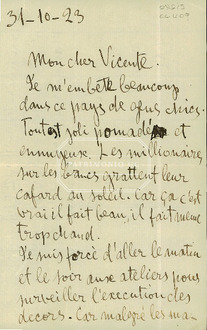 31-10-23
Mon cher Vicente.
Je m'embete beaucoup
dans ce pays de gens chics.
Tout est joli pomadé et
ennuyeux. Les millionaires
sur les bancs grattent leur
cafard au soleil. Car ça c'est
vrai il fait beau, il fait meme
trop chaud.
Je suis forcé d'aller le matin
et le soir aux ateliers pour
surveiller l'execution des
decors. Car malgré les ma-